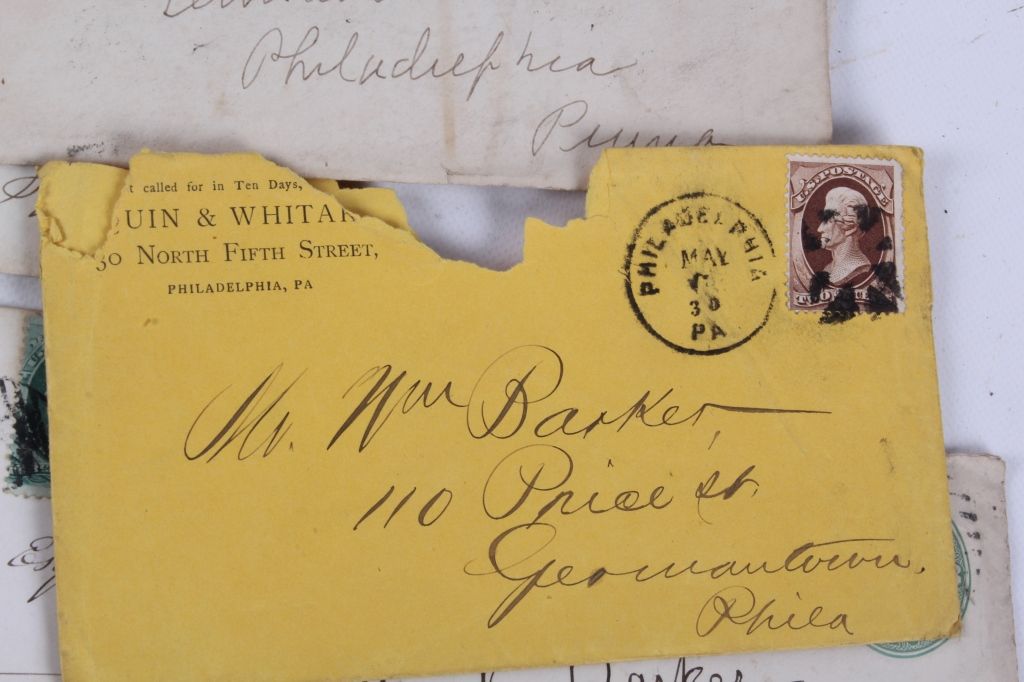 Philadelphia
Penna
t called for in Ten Days,
UIN & WHITA
30 NORTH FIFTH STREET,
PHILADELPHIA, PA
PHILADELPHIA
MAY
PA
U.S. POSTAGE
Mr. Wm Barker,
110 Price st.
Germantown.
Phila
Barker